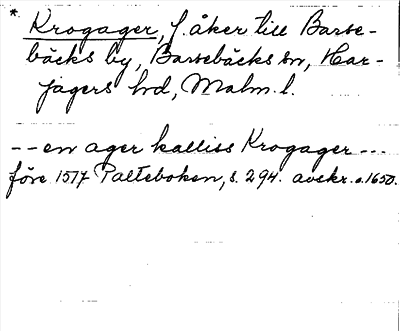 * Krogager, f. åker till Barse-
bäcks by, Barsebäcks sn, Har-
jagers hd, Malm. l.
-- en ager kalliss Krogager ---
före 1517 Palteboken, s. 294. avskr. o. 1650.